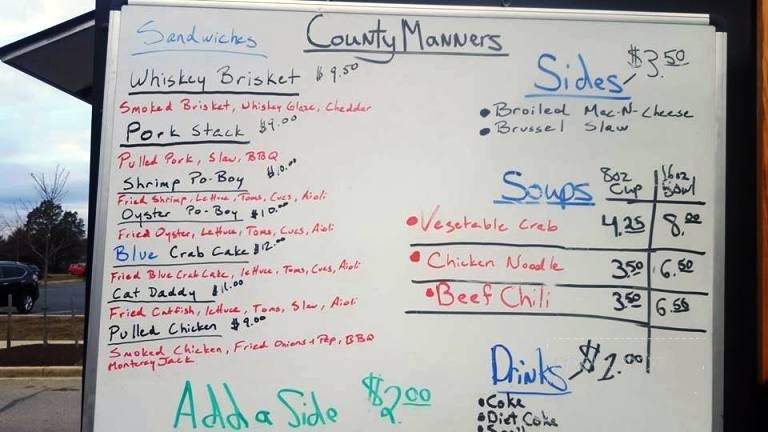 County Manners
Sandwiches
Whiskey Brisket $9.50
Smoked Brisket, Whiskey Glaze, Cheddar
Pork Stack $9.00
Pulled Pork, Slaw, BBQ
Shrimp Po-Boy $10.00
Fried Shrimp, Lettuce, Toms, Cucs, Aioli
Oyster Po-Boy $10.00
Fried Oyster, Lettuce, Toms, Cucs, Aioli
Blue Crab Cake $12.00
Fried Blue Crab Cake, lettuce, Toms, Cucs, Aioli
Cat Daddy $11.00
Fried Catfish, lettuce, Toms, Slaw, Aioli
Pulled Chicken $9.00
Smoked Chicken, Fried Onions + Pep, BBQ
Monterey Jack
Add a Side $2.00
Sides $3.50
• Broiled Mac-N-Cheese
• Brussel Slaw
Soups 8oz Cup 16oz Bowl
• Vegetable Crab 4.25 8.00
• Chicken Noodle 3.50 6.50
• Beef Chili 3.50 6.50
Drinks $1.00
• Coke
• Diet Coke